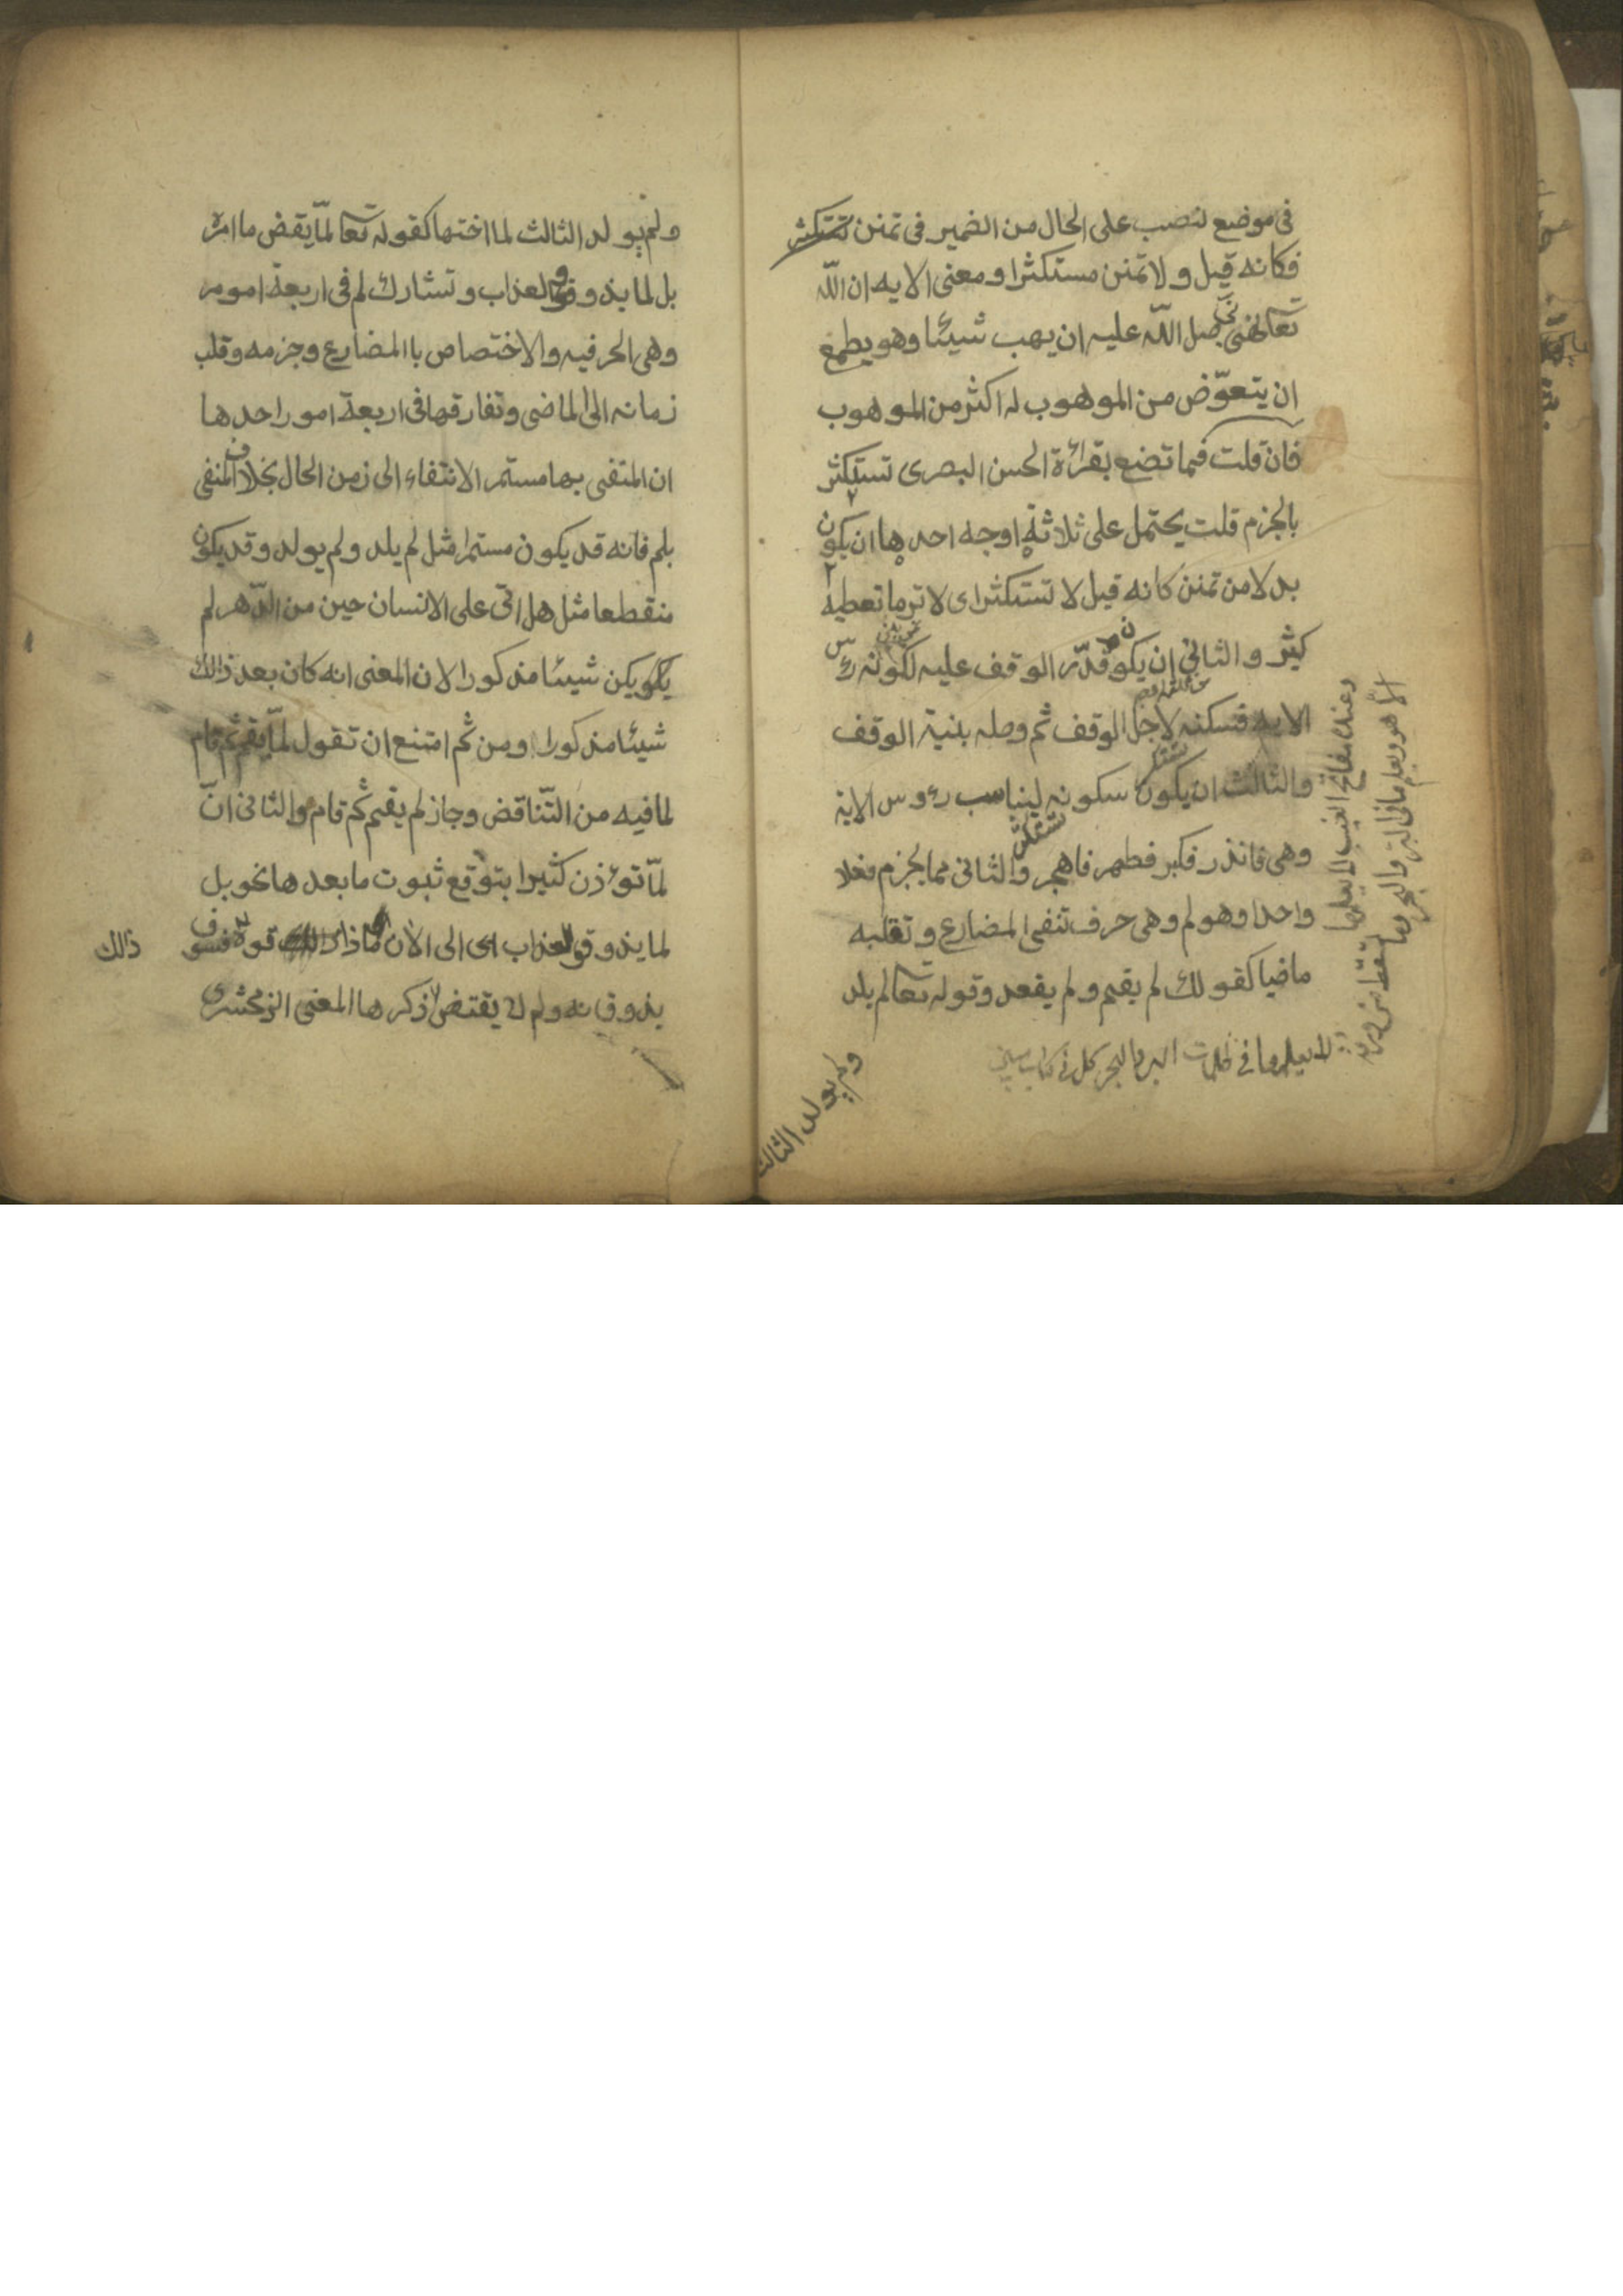 فى موضع لنصب على الحال من الضمير فى تمنن تستكثر
فكانه قيل ولا تمنن مستكثرا ومعنى الايه ان الله
تعالى نهى صلى الله عليه ان يهب شيئا وهو يطمع
ان يتعوّض من الموهوب له اكثر من الموهوب
فان قلت فما تضع بقرائة الحسن البصرى تستكثر
بالجزم قلت يحتمل على ثلاثة اوجه احدها ان يكون
بدلا من تمنن كانه قيل لا تستكثر اى لا تر ما تعطيه
كثير والثانى ان يكون قدّر الوقف عليه لكونه رئس
الايه فسكنه لاجل الوقف ثم وصله بنية الوقف
والثالث ان يكون سكونه ليناسب رءوس الاية
وهى فانذر فكبر فطهر فاهجر والثانى مما يجزم فعلا
واحدا وهو لم وهى حرف تنفى المضارع وتقلبه
ماضيا كقولك لم يقم ولم يقعد وقوله تعا لم يلد
وعنده مفاتح الغيب لا يعلمها
الا هو ويعلم ما فى البر والبحر وما تسقط من ورقة
ولم يولد الثالث
ولم يولد الثالث لما اختها كقوله تعا لمّا يقض ما امره
بل لما يذوقوا لعذاب وتشارك لم فى اربعة امور
وهى الحرفيه والاختصاص باالمضارع وجزمه وقلب
زمانه الى الماضى وتفارقها فى اربعة امور احدها
ان المنفى بها مستمر الانتفاء الى زمن الحال بخلاف المنفى
بلم فانه قد يكون مستمرا مثل لم يلد ولم يولد وقد يكون
منقطعا مثل هل اتى على الانسان حين من الدّهر لم
يكن شيئا مذكورا لان المعنى انه كان بعد ذالك
شيئا مذكورا ومن ثم امتنع ان تقول لمّا يقم ثم قام
لما فيه من التّناقض وجاز لم يقم ثم قام والثانى انّ
لمّا تؤذن كثيرا بتوقع ثبوت ما بعدها نحو بل
لما يذوقوا لعذاب اى الى الان ما ذاقوه فسوف
ذلك
يذوقونه ولم لا يقتض ذكر هاا المعنى الزمخشرى